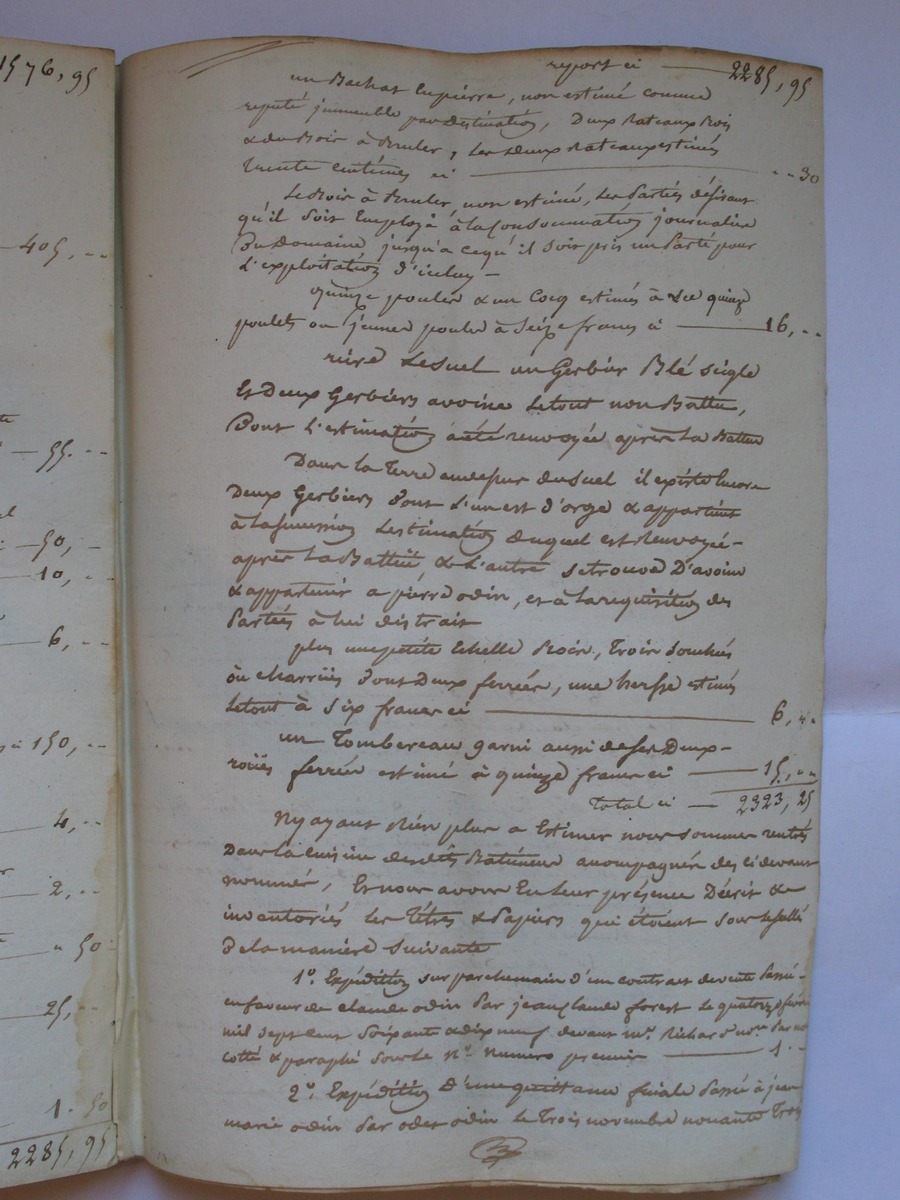 1576, 95
405, --
55. --
50, -
10, --
6, --
150, --
4, --
2, --
" 50
25, --
1. 50
2285, 95
report ci — 2285, 95
un Bachat en pierre, non estimé comme
reputé immeuble par Destination, Deux Rateaux Bois
& du Bois à Bruler, les Deux Rateaux estimés
trente centimes ci — - - 30
Le Bois à Bruler non estimé, les Parties désirant
qu'il soit Employé à la Consommation journaliere
Du Domaine, jusqu'a ce qu'il soit pris un Parti pour
L'exploitation d'iceluy —
quinze poules & un Cocq estimés à sec quinze
poulets ou jeunes poules à Seize francs ci — 16, --
Lesuel un Gerbier Blé seigle
Et Deux Gerbiers avoine Le tout non Battu,
Dont L'estimation a été renvoyée après La Batture
Dans la Terre audessus dusuel il existe Encore
Deux Gerbiers Dont L'un est d'orge & appartient
à la succession L'estimation duquel est Renvoyé-
après La Batture & L'autre se trouve D'avoine
& appartenir a pierre odin, et à la requisition des
Parties à lui distrait
plus une petite Echelle Bois, Trois
ou charrües Dont Deux ferrées, une herse estimés
Le tout à Six francs ci — 6, "
un Tombereau garni aussi de ses Deux-
roües ferrées estimé à quinze francs ci — 15, --
Total ci — 2323, 25
N'y ayant Rien plus a Estimer nous sommes rentrés
Dans la cuisine desdits Batiments accompagnés des ci devant
nommés, Et nous avons En leur présence Décrit &
inventoriés les Titres & Papiers qui étoient sous le scellé
De la maniere suivante
1°. Expédition sur parchemain d'un contrat de vente Passé-
en faveur de claude odin Par jean claude forest Le quatorze février
mil sept cent Soixante & dix neuf devant me. Richard nore. Par
cotté & paraphé sous le N°. Numero premier — 1 -
2°. Expédition D'une quittance finale Passé à jean
marie odin Par odet odin Le Trois novembre nonante Trois